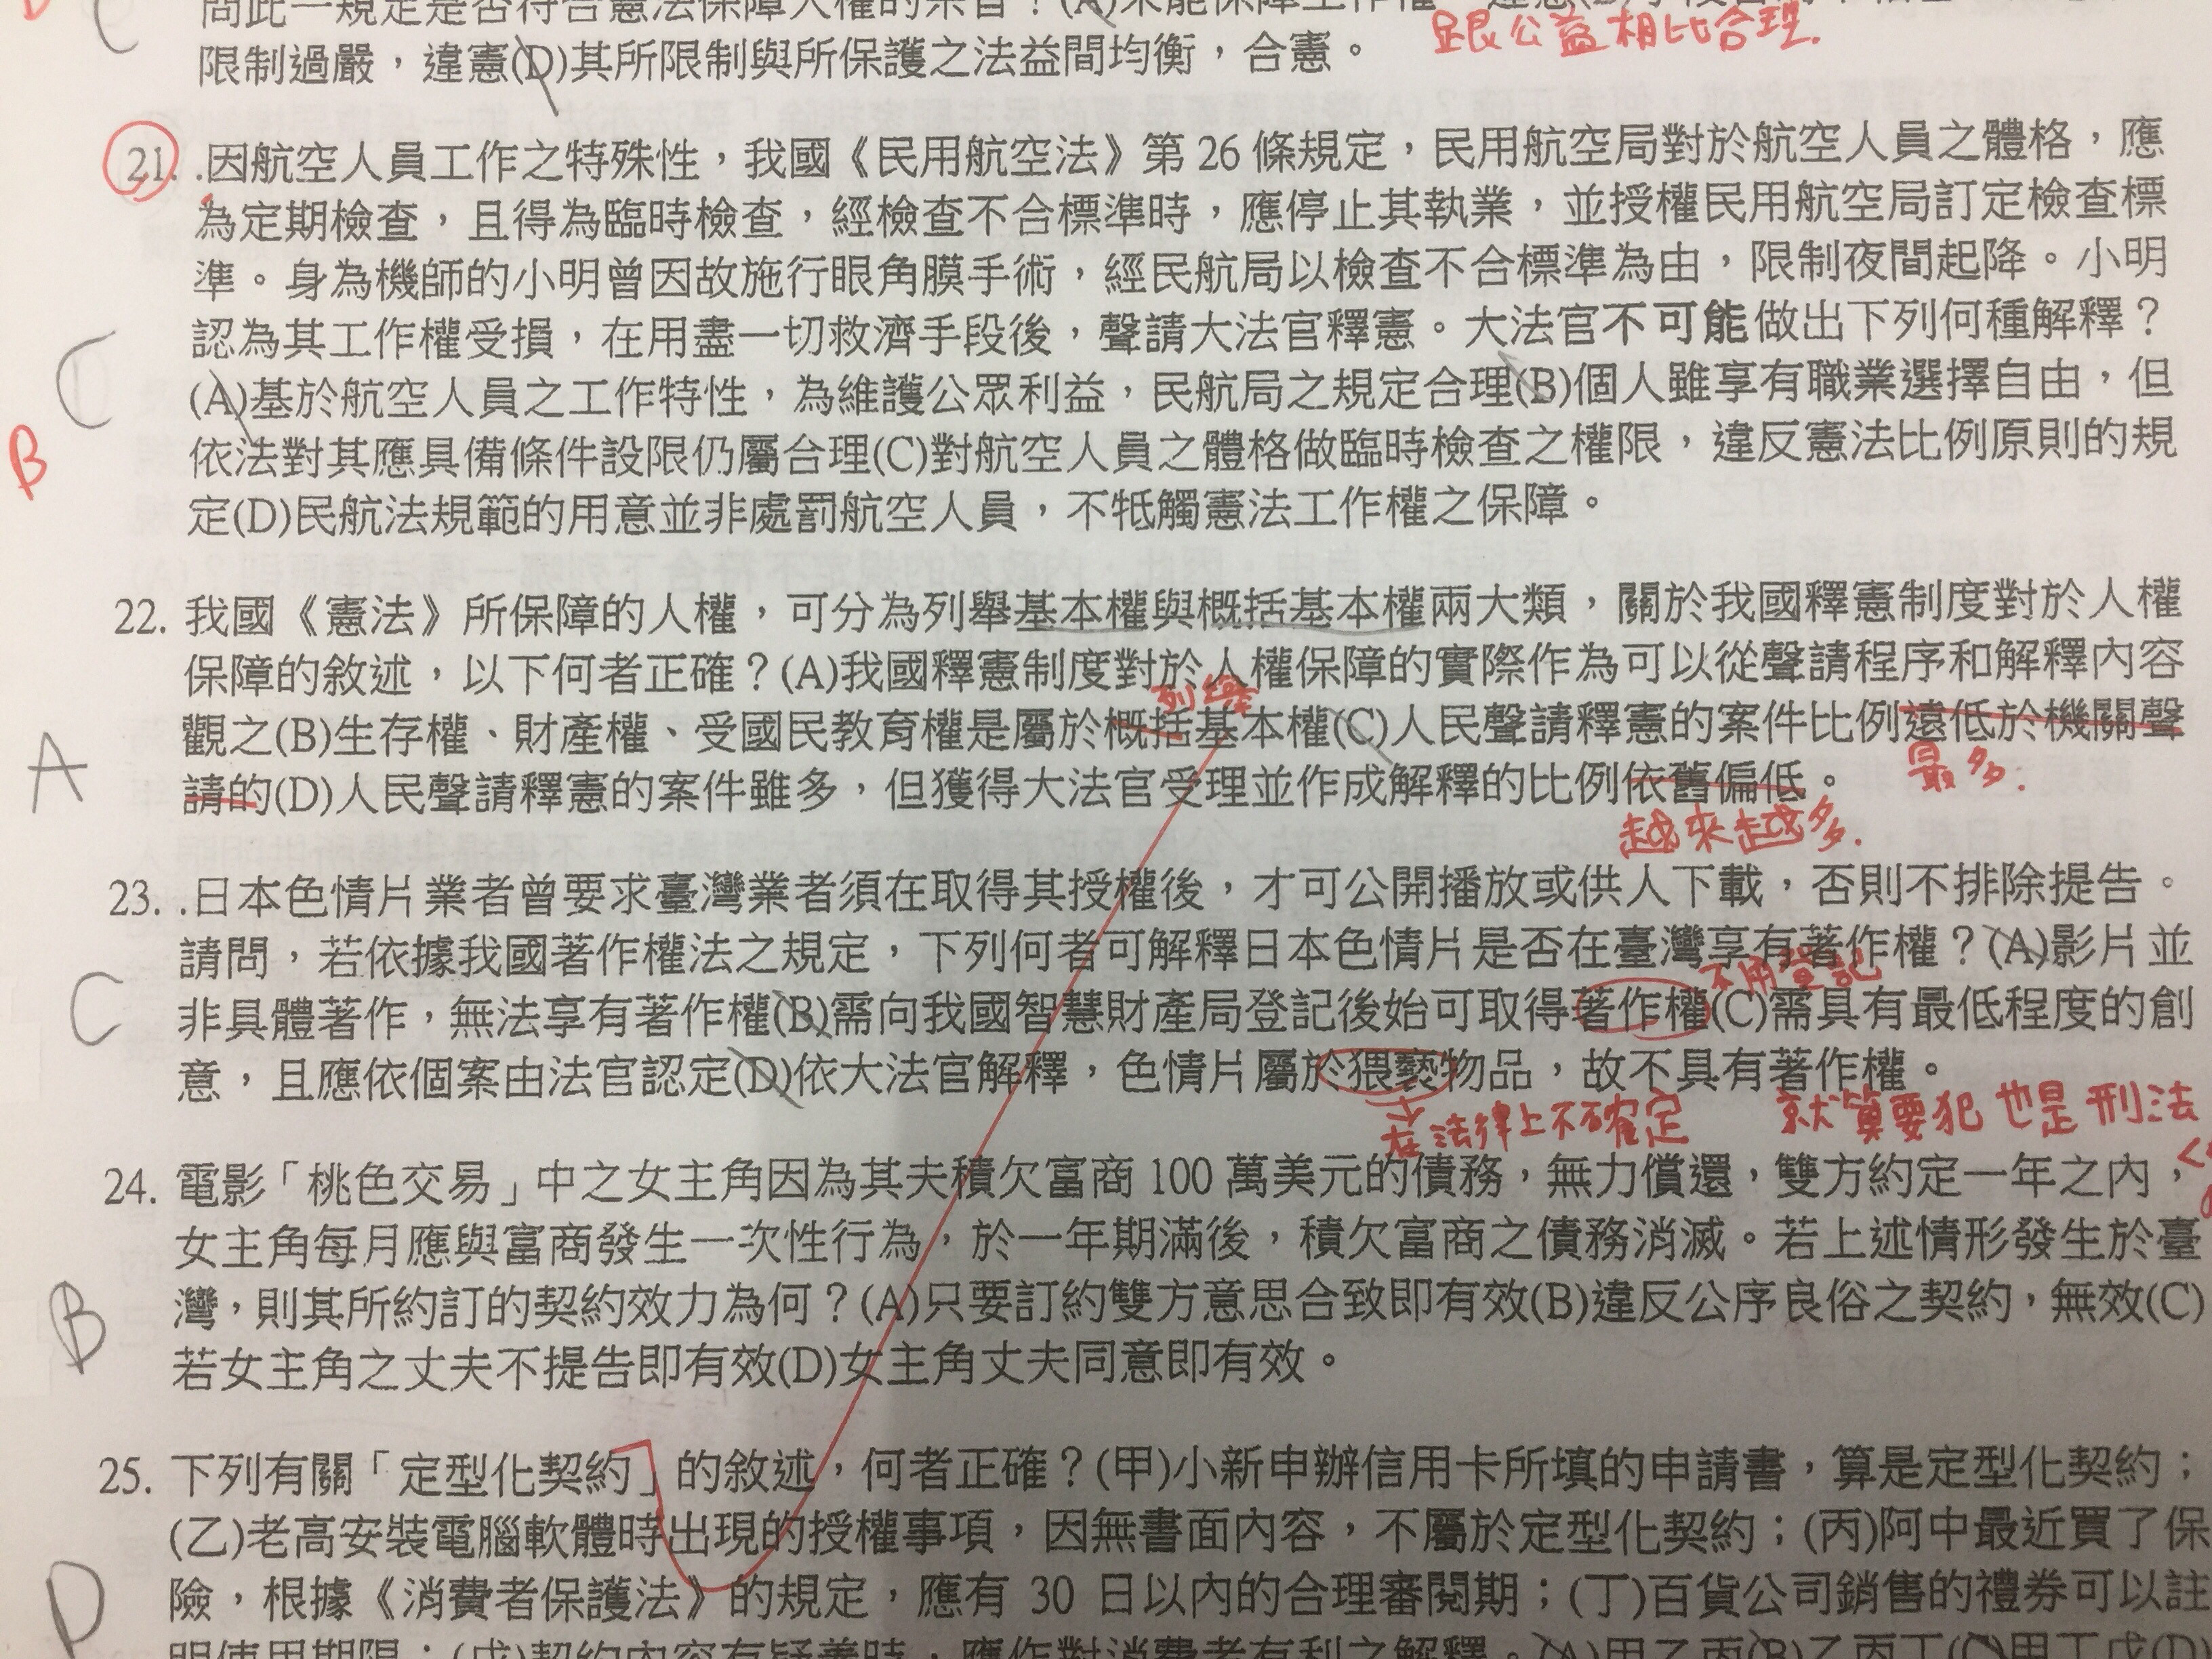 限制過嚴，違憲(D)其所限制與所保護之法益間均衡，合憲。
跟公益相比合理.
21. .因航空人員工作之特殊性，我國《民用航空法》第 26 條規定，民用航空局對於航空人員之體格，應
為定期檢查，且得為臨時檢查，經檢查不合標準時，應停止其執業，並授權民用航空局訂定檢查標
準。身為機師的小明曾因故施行眼角膜手術，經民航局以檢查不合標準為由，限制夜間起降。小明
認為其工作權受損，在用盡一切救濟手段後，聲請大法官釋憲。大法官不可能做出下列何種解釋？
C
(A)基於航空人員之工作特性，為維護公眾利益，民航局之規定合理(B)個人雖享有職業選擇自由，但
B
依法對其應具備條件設限仍屬合理(C)對航空人員之體格做臨時檢查之權限，違反憲法比例原則的規
定(D)民航法規範的用意並非處罰航空人員，不牴觸憲法工作權之保障。
22. 我國《憲法》所保障的人權，可分為列舉基本權與概括基本權兩大類，關於我國釋憲制度對於人權
保障的敘述，以下何者正確？(A)我國釋憲制度對於人權保障的實際作為可以從聲請程序和解釋內容
觀之(B)生存權、財產權、受國民教育權是屬於概括基本權(C)人民聲請釋憲的案件比例遠低於機關聲
A
最多.
請的(D)人民聲請釋憲的案件雖多，但獲得大法官受理並作成解釋的比例依舊偏低。
越來越多.
23. .日本色情片業者曾要求臺灣業者須在取得其授權後，才可公開播放或供人下載，否則不排除提告。
請問，若依據我國著作權法之規定，下列何者可解釋日本色情片是否在臺灣享有著作權？(A)影片並
不用登記
C
非具體著作，無法享有著作權(B)需向我國智慧財產局登記後始可取得著作權(C)需具有最低程度的創
意，且應依個案由法官認定(D)依大法官解釋，色情片屬於猥褻物品，故不具有著作權。
在法律上不確定
就算要犯也是刑法
24. 電影「桃色交易」中之女主角因為其夫積欠富商 100 萬美元的債務，無力償還，雙方約定一年之內，
女主角每月應與富商發生一次性行為，於一年期滿後，積欠富商之債務消滅。若上述情形發生於臺
B
灣，則其所約訂的契約效力為何？(A)只要訂約雙方意思合致即有效(B)違反公序良俗之契約，無效(C)
若女主角之丈夫不提告即有效(D)女主角丈夫同意即有效。
25. 下列有關「定型化契約」的敘述，何者正確？(甲)小新申辦信用卡所填的申請書，算是定型化契約；
(乙)老高安裝電腦軟體時出現的授權事項，因無書面內容，不屬於定型化契約；(丙)阿中最近買了保
D
險，根據《消費者保護法》的規定，應有 30 日以內的合理審閱期；(丁)百貨公司銷售的禮券可以註
明使用期限；(戊)契約內容有疑義時，應作對消費者有利之解釋。(A)甲乙丙(B)乙丙丁(C)甲丁戊(D)